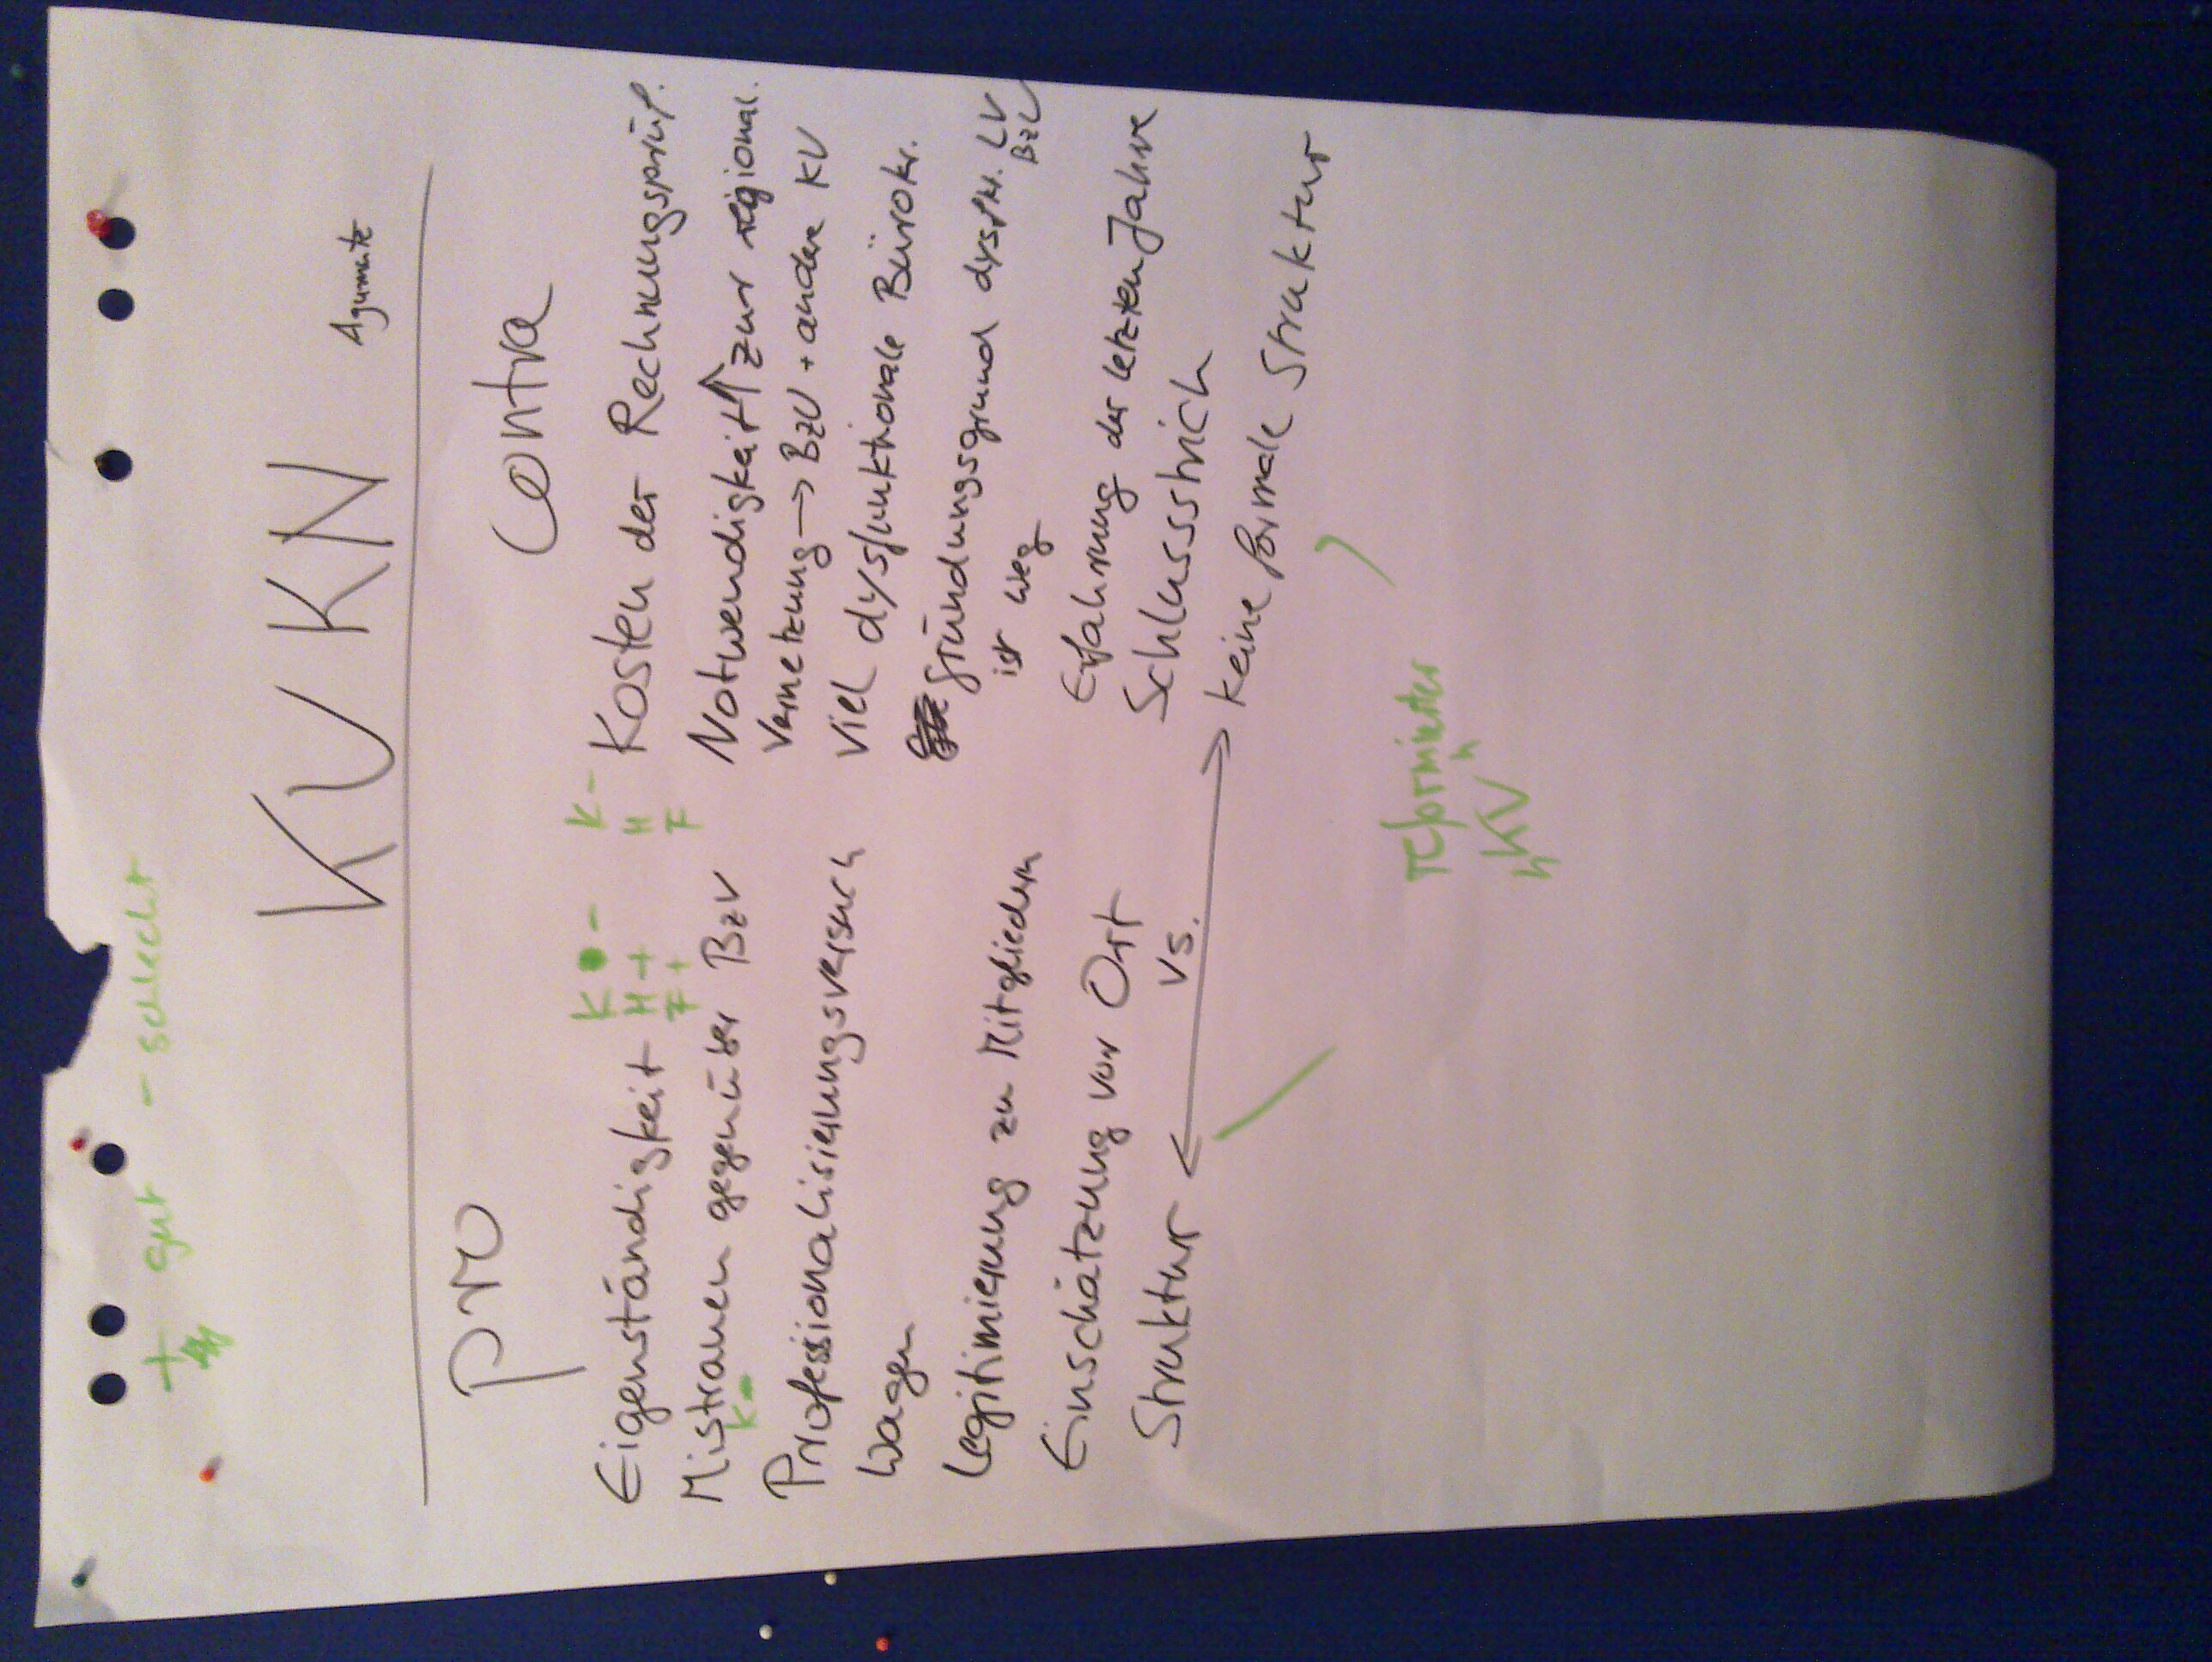 + gut - schlecht
KV KN
Agumente
Pro
Eigenständigkeit
K -
H +
F +
Mistrauen gegenüber BzV
K -
Professionalisierungsversuch
wagen
Legitimierung zu Mitgliedern
Einschätzung vor Ort
Struktur
vs.
Contra
K -
H
F
Kosten der Rechnungsprüf.
Notwendigkeit ↑ zur regional.
Vernetzung → BzV + andere KV
Viel dysfunktionale Bürokr.
Gründungsgrund dysfkt. LV
BzV
ist weg
Erfahrung der letzten Jahre
Schlussstrich
keine formale Struktur
"KV"